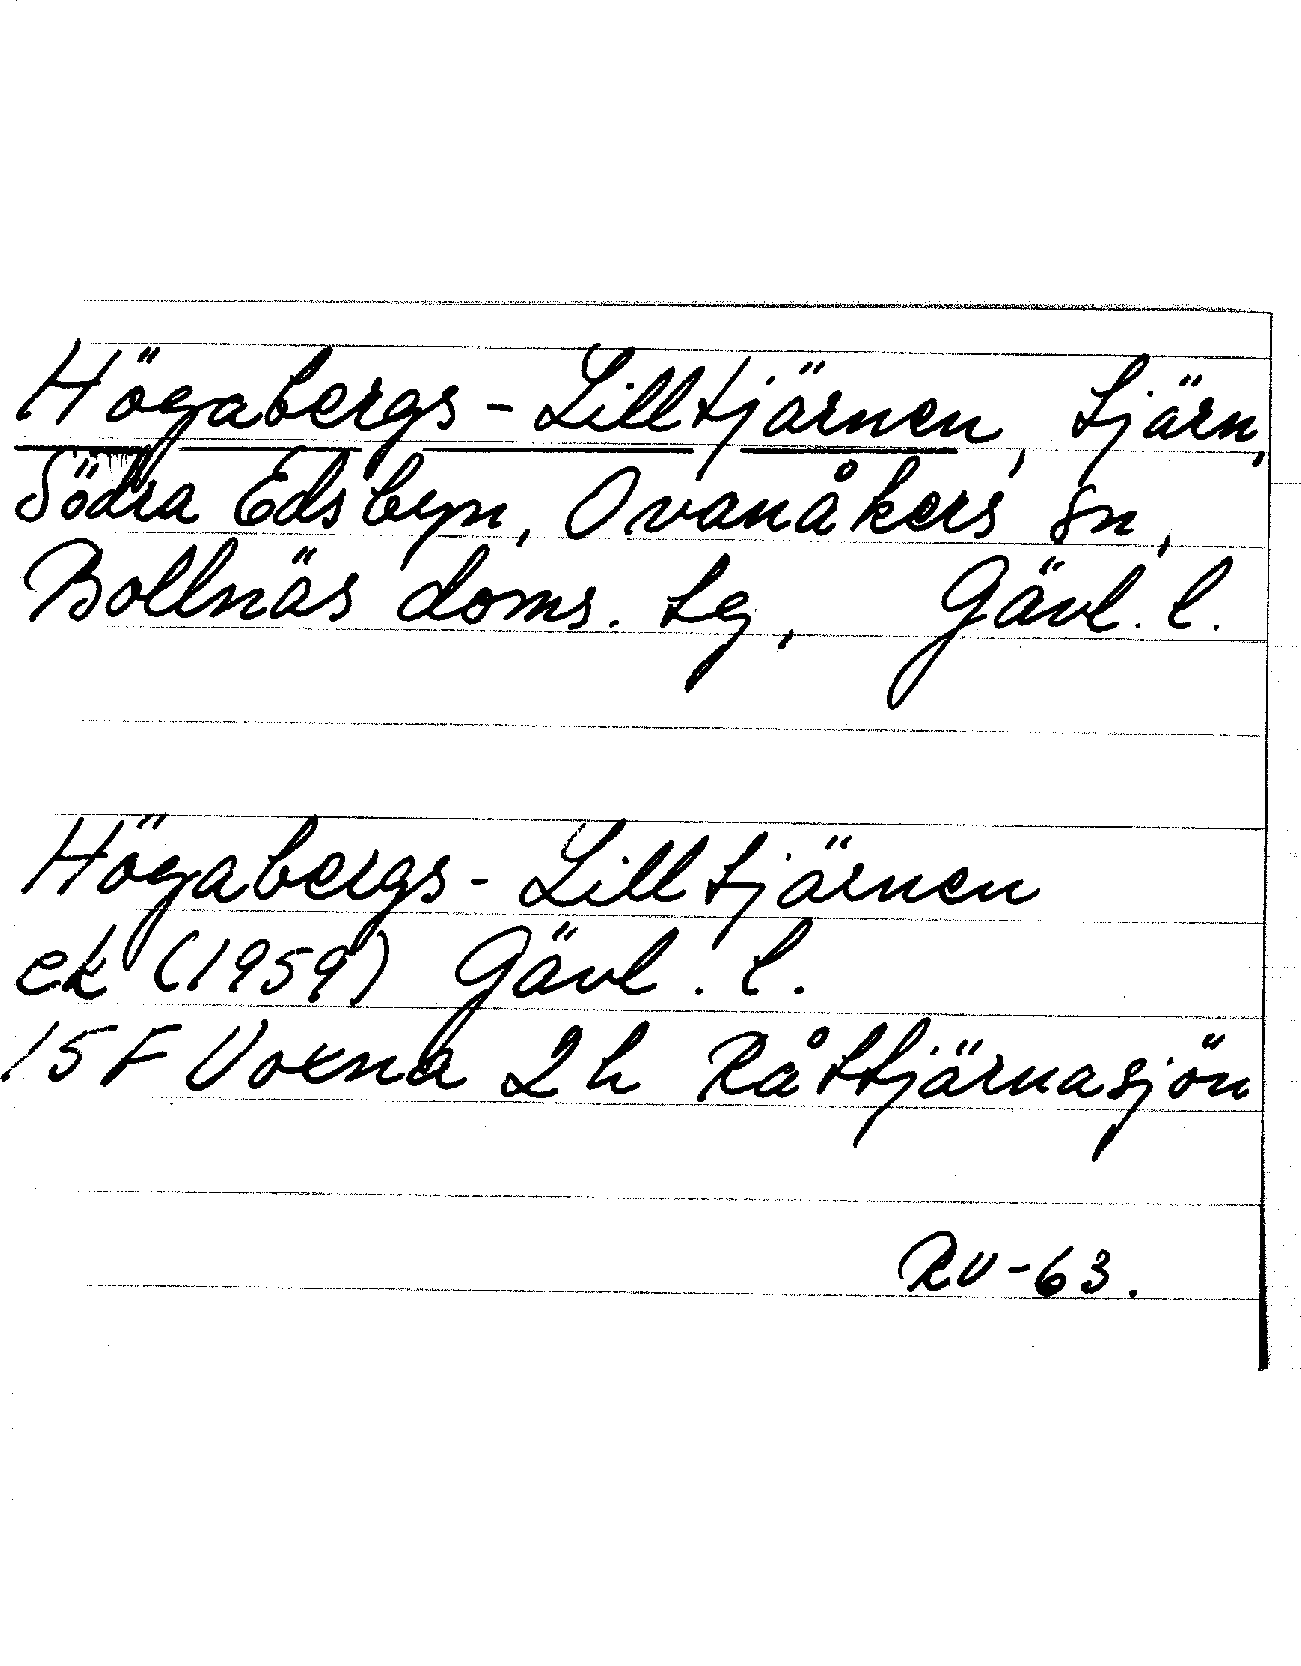 Högabergs-Lilltjärnen, tjärn,
Södra Edsbyn, Ovanåkers sn,
Bollnäs doms. tg, Gävl. l.
Högabergs-Lilltjärnen
ek (1959) Gävl. l.
15 F Voxna 2 h Råttjärnasjön
RV-63.